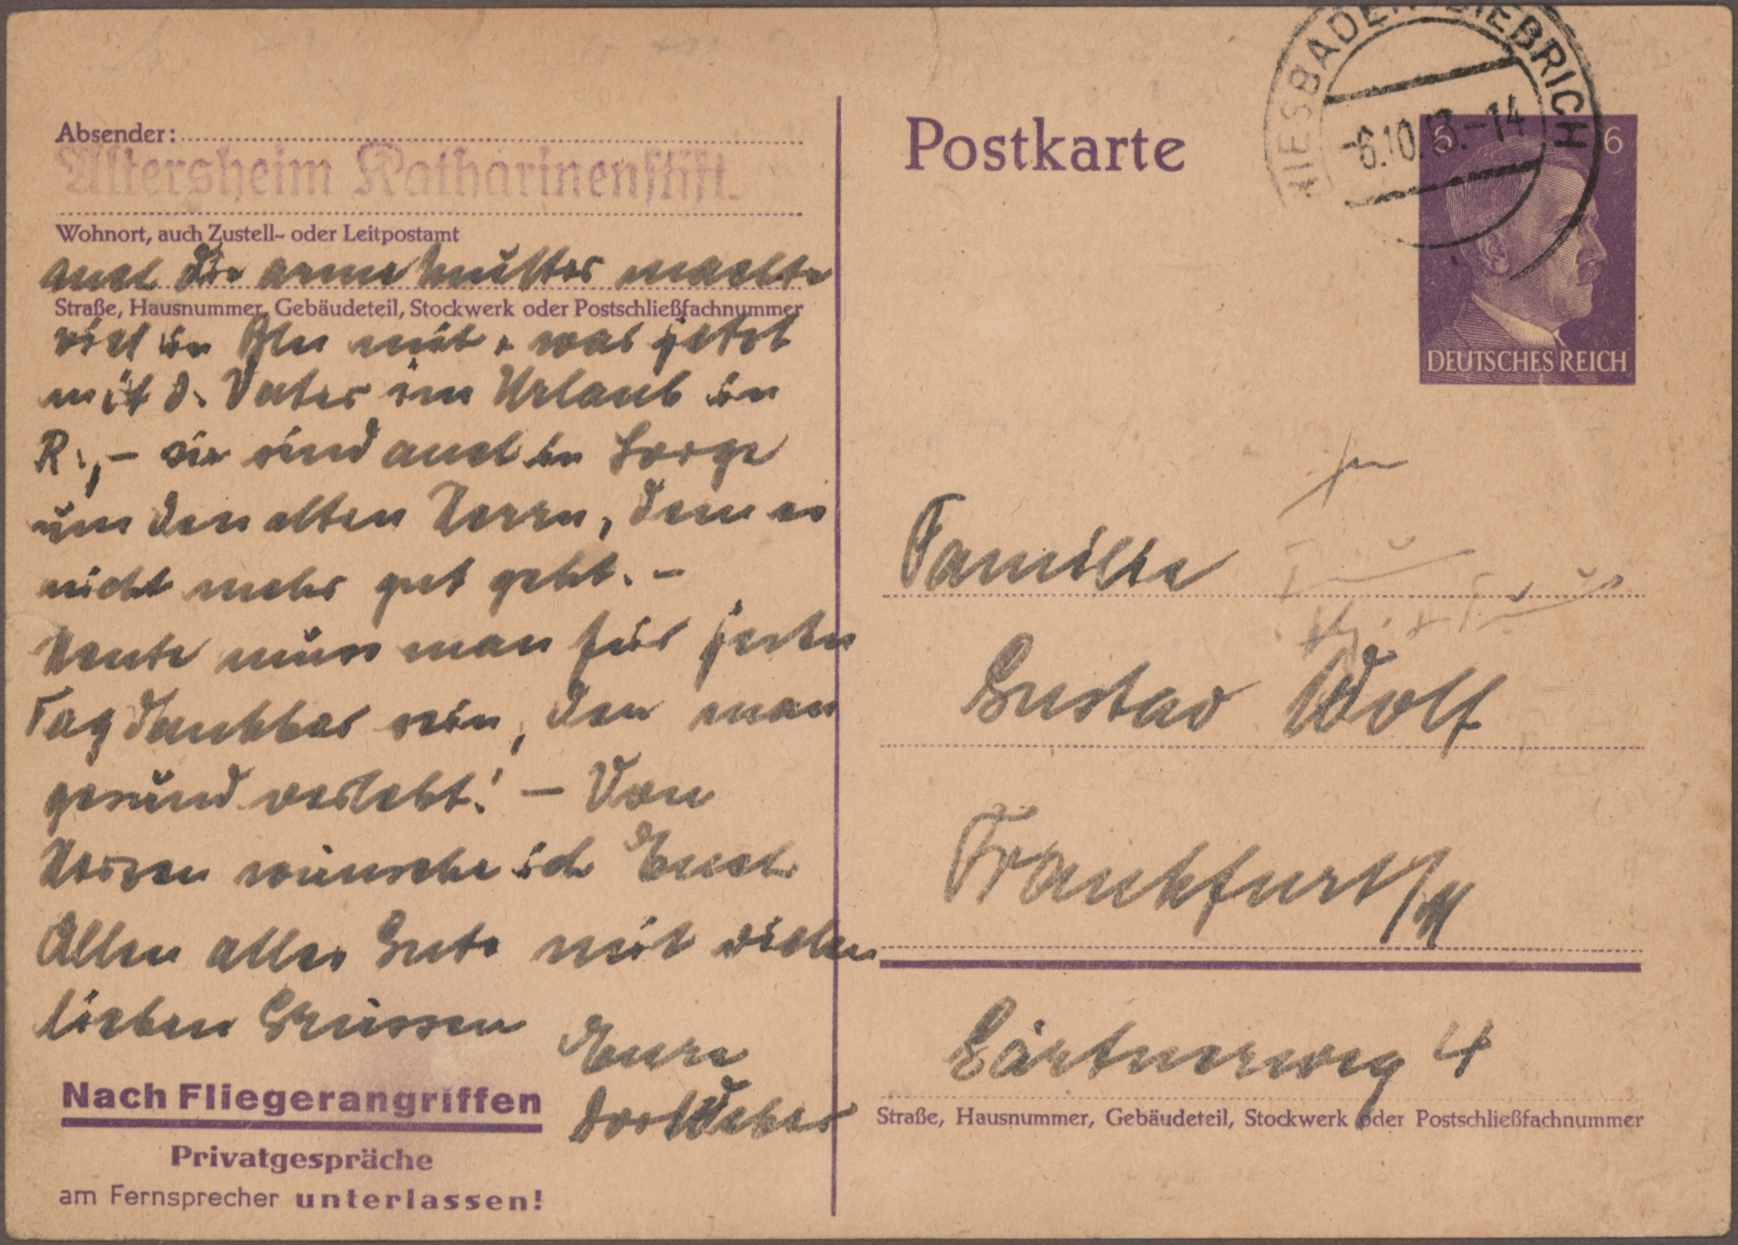 Absender:
Altersheim Katharinenstift.
Wohnort, auch Zustell- oder Leitpostamt
auch die arme Mutter machte
Straße, Hausnummer, Gebäudeteil, Stockwerk oder Postschließfachnummer
viel in mit, was jetzt
mit d. Vater im Urlaub in
R., – sie sind auch in Sorge
um den alten Herrn, dem es
nicht mehr gut geht. –
Heute muss man für jeden
Tag dankbar sein, den man
gesund verlebt! – Von
Herzen wünsche ich Euch
Allen alles Gute mit vielen
lieben Grüssen
Eure
Weber
Nach Fliegerangriffen
Privatgespräche
am Fernsprecher unterlassen!
Postkarte
WIESBADEN-BIEBRICH
-6.10.43.-14
6 6
DEUTSCHES REICH
Familie
Gustav Wolf
Frankfurt/M
Gärtnerweg 4
Straße, Hausnummer, Gebäudeteil, Stockwerk oder Postschließfachnummer